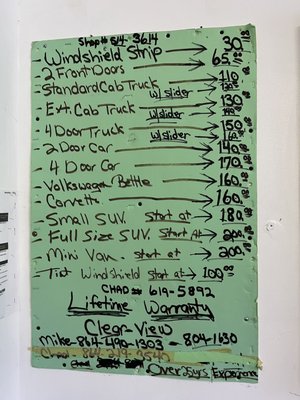 Shop# 864- 3614
Windshield Strip → 30.00
2 Front Doors → 65.00
Standard Cab Truck → 110
w/ slider 120
Ext. Cab Truck → 130
w/ slider 140
4 Door Truck → 150
w/ slider 160
2 Door Car → 140.00
4 Door Car → 170.00
Volkswagen Bettle → 160.00
Corvette → 160.00
Small SUV. Start at → 180.00
Full Size SUV. Start At → 200.00
Mini Van. Start at → 200.00
Tint Windshield start at → 100.00
CHAD# 619-5892
Lifetime Warranty
Clear-View
Mike-864-490-1303 - 804-1630
Over 25yrs Experience